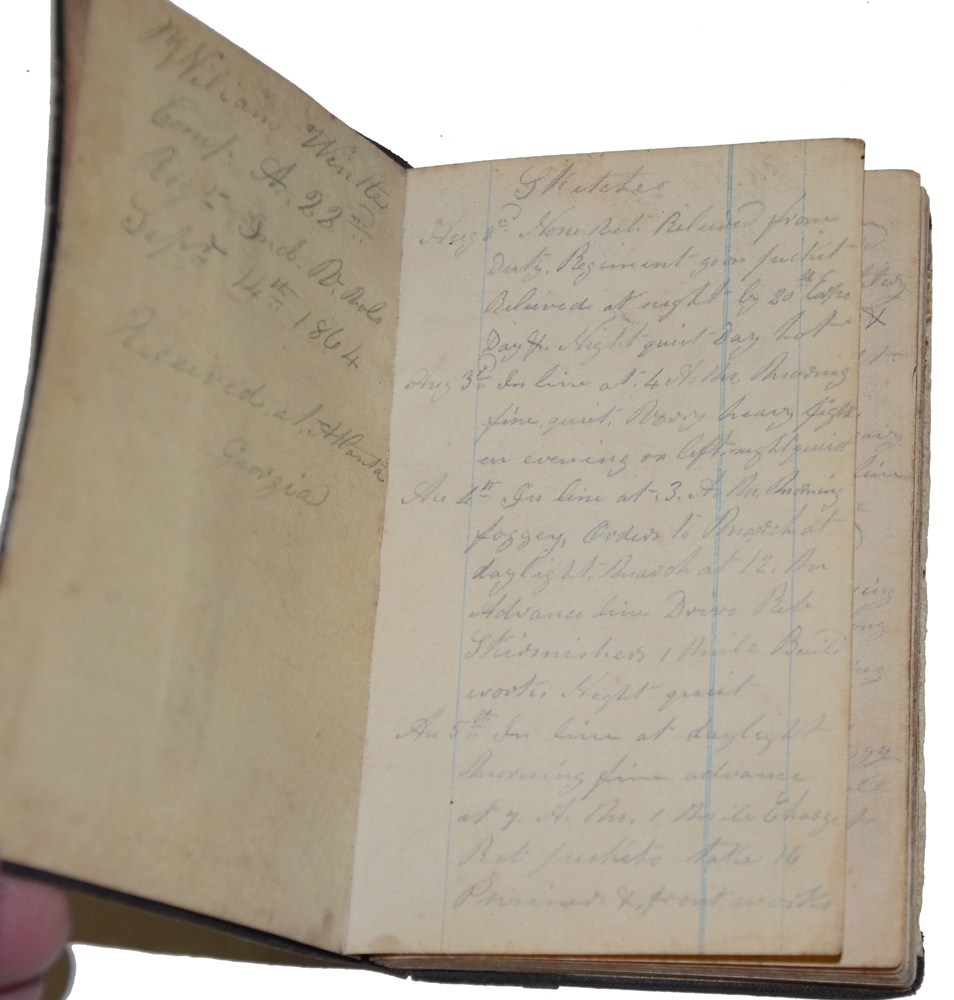 William Winkler
Comp. A. 22nd
Regt Ind. V. Vols
Sept 14th 1864
Received at Atlanta
Georgia
Sketches
Aug 2nd Relieved from
Duty. Regiment goes picket
Relieved at night by 20th Corps
Day & Night quiet Day hot
Aug 3rd In line at 4 A. M. Morning
fine, quiet. Very heavy fight
in evening on left, night quiet
Au 4th In line at 3. A. M. Morning
foggey, Orders to March at
daylight. March at 12. M
Advance line Drove Reb
Skirmishers 1 Mile. Build
works. Night quiet
Au 5th In line at daylight
Morning fine advance
at 7. A. M. 1 Mile Charge
Reb pickets take 16
Prisiners & front works